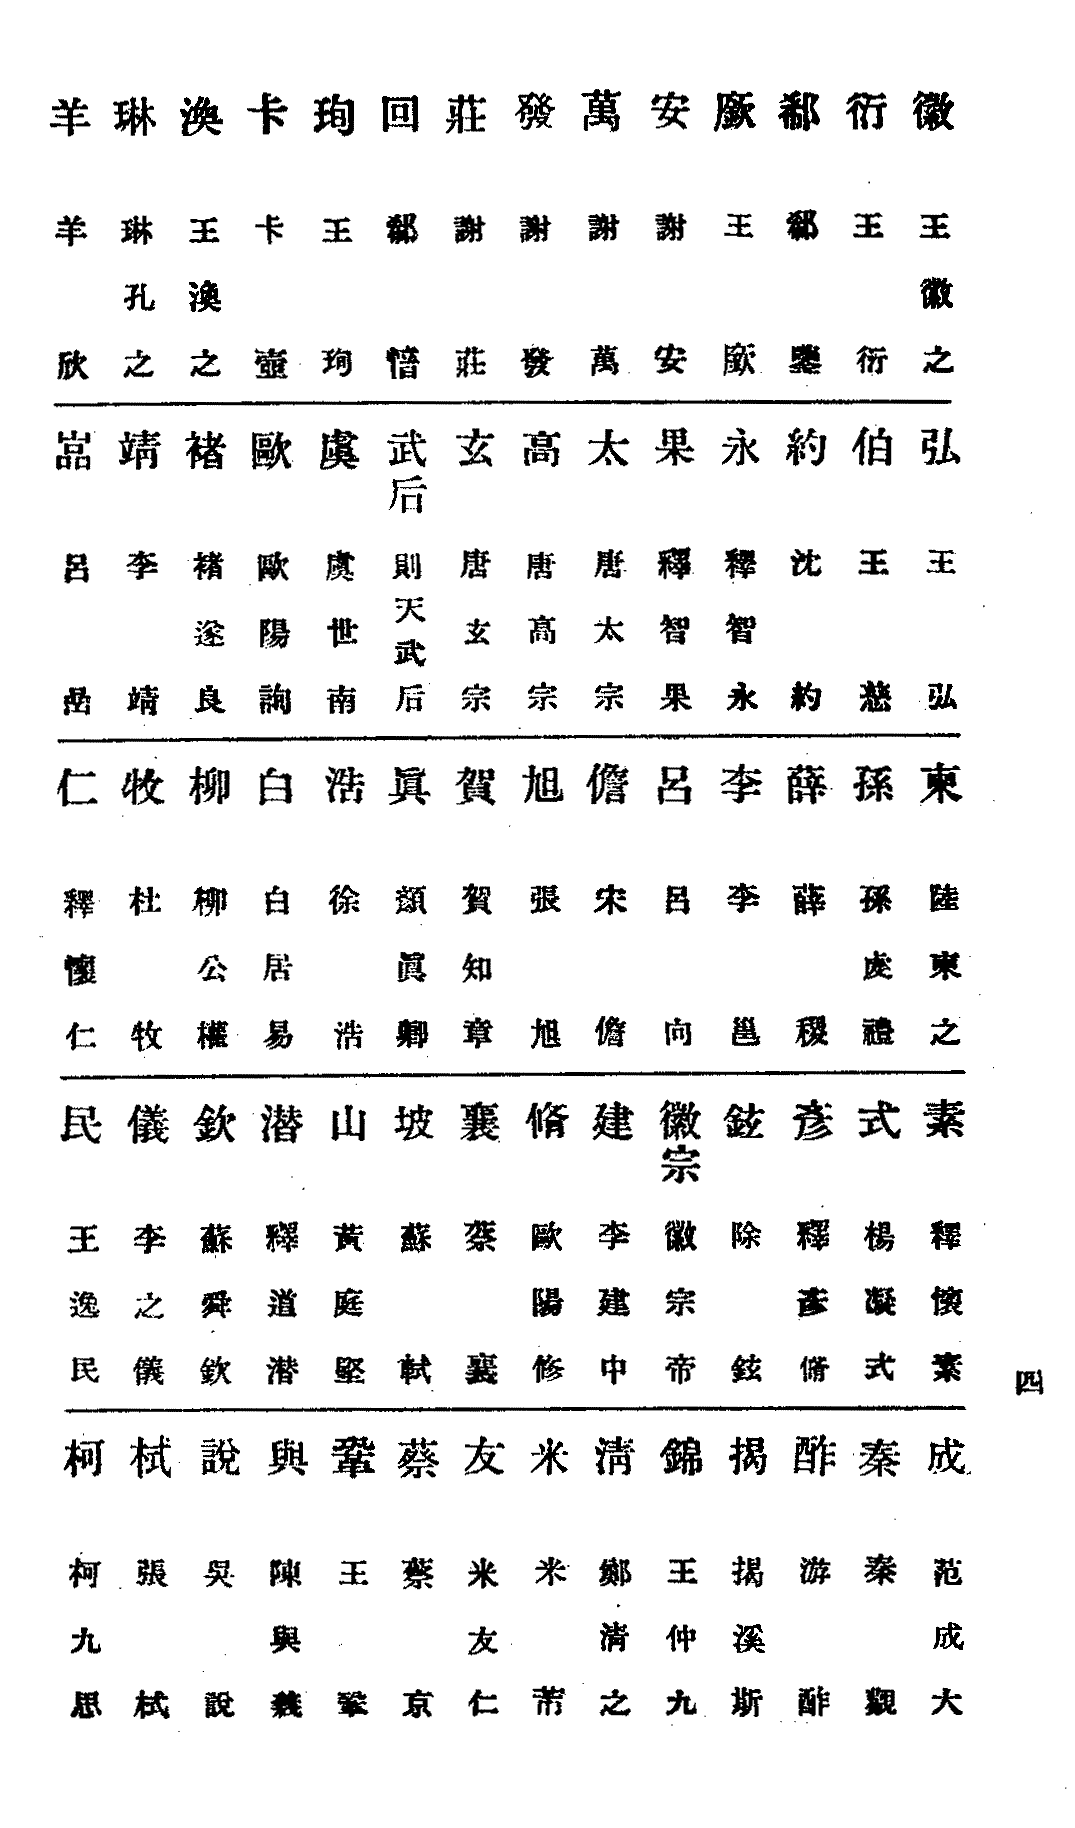 徽 王徽之
衍 王衍
郗 郗鑒
廞 王廞
安 謝安
萬 謝萬
發 謝發
莊 謝莊
回 郗愔
珣 王珣
卡 卡壺
渙 王渙之
琳 琳孔之
羊 羊欣
弘 王弘
伯 王慈
約 沈約
永 釋智永
果 釋智果
太 唐太宗
高 唐高宗
玄 唐玄宗
武后 則天武后
虞 虞世南
歐 歐陽詢
褚 褚遂良
靖 李靖
嵓 呂嵒
柬 陸柬之
孫 孫虔禮
薛 薛稷
李 李邕
呂 呂向
儋 宋儋
旭 張旭
賀 賀知章
眞 顏眞卿
浩 徐浩
白 白居易
柳 柳公權
牧 杜牧
仁 釋懷仁
素 釋懷素
式 楊凝式
彥 釋彥脩
鉉 除鉉
徽宗 徽宗帝
建 李建中
脩 歐陽修
襄 蔡襄
坡 蘇軾
山 黃庭堅
潜 釋道潜
欽 蘇舜欽
儀 李之儀
民 王逸民
成 范成大
秦 秦觀
酢 游酢
揭 揭溪斯
錦 王仲九
淸 鄭淸之
米 米芾
友 米友仁
蔡 蔡京
鞏 王鞏
與 陳與義
說 吳說
栻 張栻
柯 柯九思
四